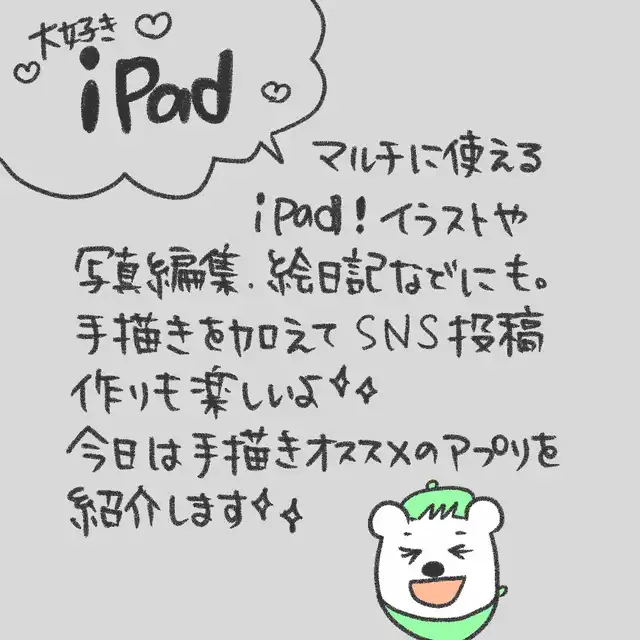 大好き
iPad
マルチに使える
iPad！イラストや
写真編集、絵日記などにも。
手描きを加えてSNS投稿
作りも楽しいよ✨
今日は手描きオススメのアプリを
紹介します✨